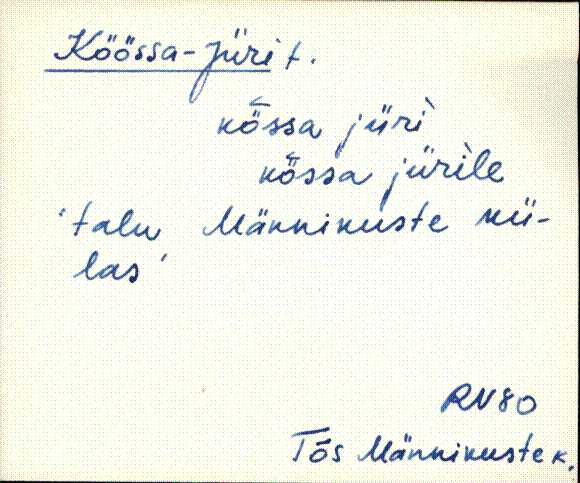 Köössa-Jüri t.
kö̆̄ssa jürì
kö̆̄ssa jürìle
'talu Männikuste kü-
las'
RN80
Tõs Männikuste k.